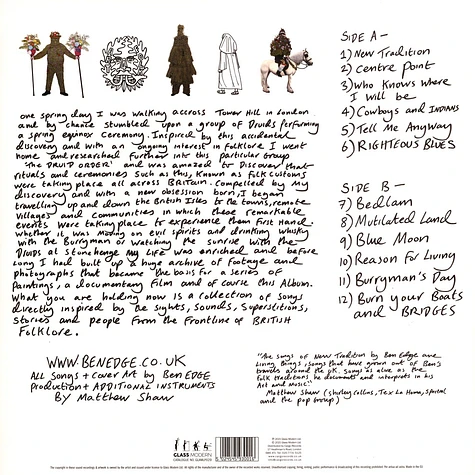 one spring day I was walking accross Tower Hill in London
and by chance stumbled upon a group of Druids performing
a spring equinox ceremony. Inspired by this accidental
discovery and with an ongoing interest in folklore I went
home and researched further into this particular group
'THE DRUID ORDER' and was amazed to Discover that
rituals and ceremonies such as this, known as folk customs
were taking place all across BRITAIN. Compelled by my
discovery and with a new obsession born, I began
travelling up and down the British Isles to the towns, remote
villages and communities in which these remarkable
events were taking place to experience them first hand.
Whether it was moving on evil spirits and drinking whisky
with the Burryman or watching the sunrise with the
Druids at stonehenge my life was enriched and before
long I had built up a huge archive of footage and
photographs that became the basis for a series of
paintings, a documentary film and of course this Album.
What you are holding now is a collection of songs
directly inspired by the sights, sounds, superstitions,
stories and people from the Frontline of BRITISH
Folklore.
WWW.BENEDGE.CO.UK
ALL Songs + Cover Art by Ben EDGE
Production + ADDITIONAL INSTRUMENTS
By Matthew Shaw
SIDE A -
1) New Tradition
2) Centre Point
3) Who Knows Where
I will be
4) Cowboys and INDIANS
5) Tell Me Anyway
6) RIGHTEOUS BLUES
SIDE B -
7) Bedlam
8) Mutilated Land
9) Blue Moon
10) Reason for Living
11) Burryman's Day
12) Burn your Boats
and BRIDGES
"The songs of New Tradition by Ben Edge are
Living Beings, songs that have grown out of Ben's
travels around the UK. Songs as alive as the
folk traditions he documents and interprets in his
Art and Music."
Matthew Shaw (Shirley Collins, Tex La Homa,
and the Pop Group)
GLASS MODERN